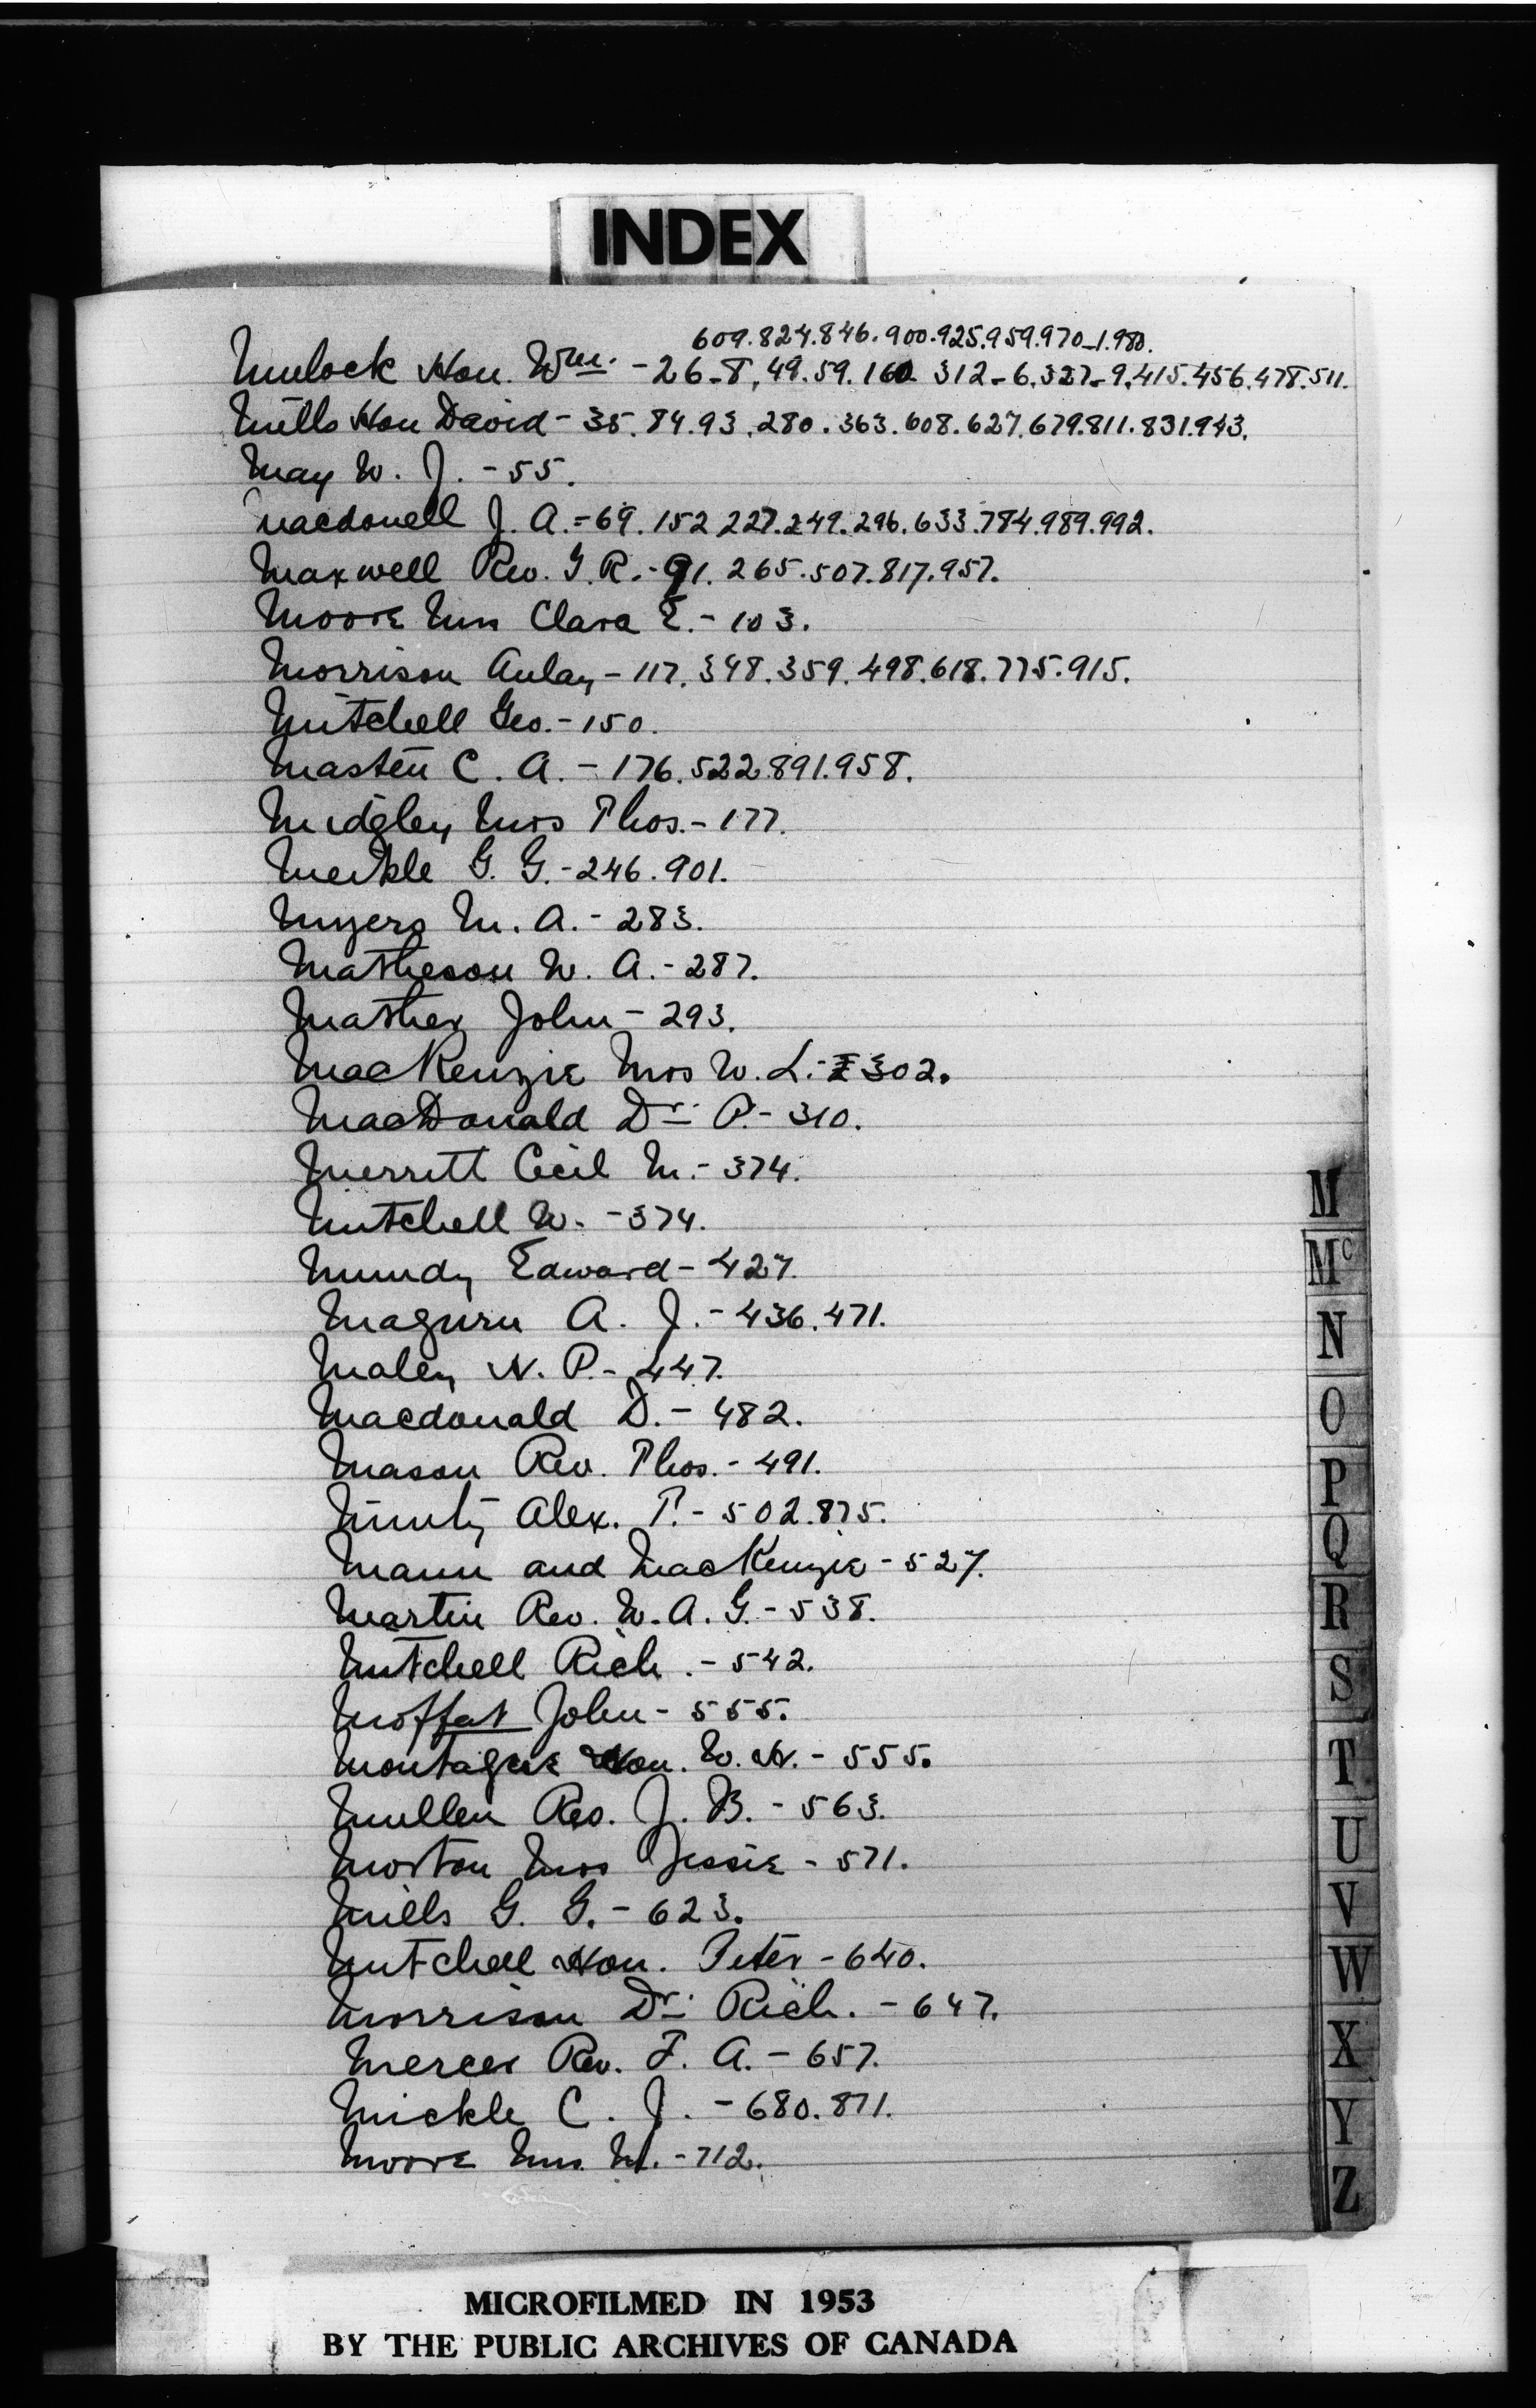 INDEX
609.824.846.900.925.959.970-1.980.
Mulock Hon. Wm. - 26-8, 49.59.160. 312-6,327-9,415.456.478.511.
Mills Hon David - 35.84.93.280.363.608.627.679.811.831.943.
May W. J. - 55.
Macdonell J. A. - 69.152.227.249.296.633.784.989.992.
Maxwell Rev. G. R. - 91.265.507.817.957.
Moore Clara E. - 103.
Morrison Aulay - 117.348.359.498.618.775.915.
Mitchell Geo. - 150.
Masten C. A. - 176.522.891.958.
Midgley Mrs Thos. - 177.
Merkle G. G. - 246.901.
Myers M. A. - 283.
Matheson W. A. - 287.
Mather John - 293.
MacKenzie Mrs W. L. - 302.
MacDonald Dr. P. - 310.
Merritt Cecil M. - 374.
Mitchell W. - 374.
Mundy Edward - 427.
Maguire A. J. - 436.471.
Maley N. P. - 447.
Macdonald D. - 482.
Mason Rev. Thos. - 491.
Alex. T. - 502.875.
Mann and MacKenzie - 527.
Martin Rev. W. A. G. - 538.
Mitchell Rich. - 542.
Moffat John - 555.
Montague Hon. W. H. - 555.
Mullen Rev. J. B. - 563.
Morton Mrs Jessie - 571.
Mills G. G. - 623.
Mitchell Hon. Peter - 640.
Morrison Dr. Rich. - 647.
Mercer Rev. F. A. - 657.
Mickle C. J. - 680.871.
Moore M. - 712.
M
Mc
N
O
P
Q
R
S
T
U
V
W
X
Y
Z
MICROFILMED IN 1953
BY THE PUBLIC ARCHIVES OF CANADA